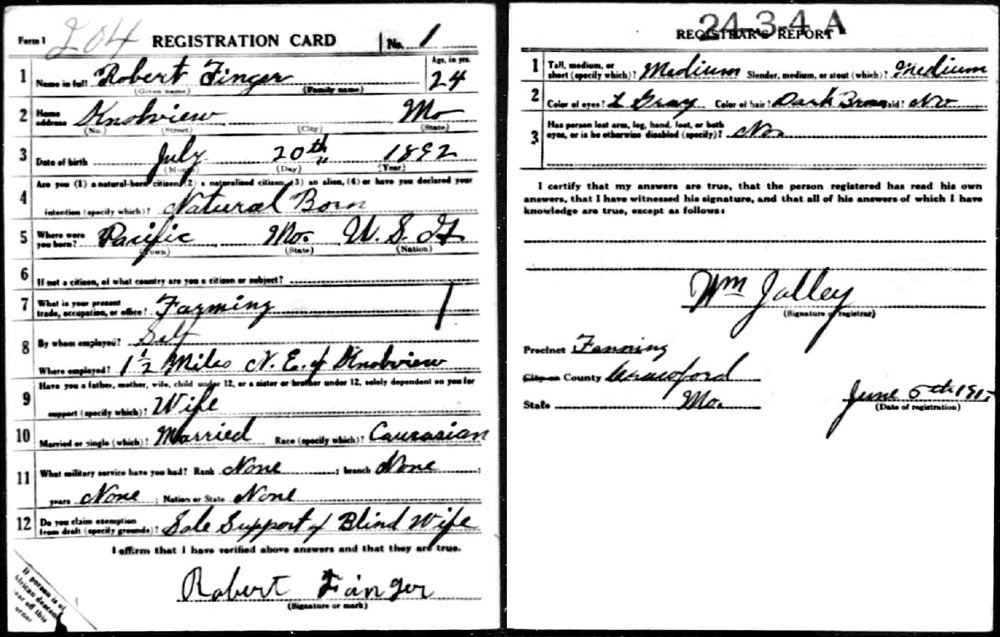 Form 1 204 REGISTRATION CARD No. 1
1 Name in full Robert Finger Age, in yrs. 24
(Given name) (Family name)
2 Home address Knobview Mo
(No.) (Street) (City) (State)
3 Date of birth July 20th 1892
(Month) (Day) (Year)
4 Are you (1) a natural-born citizen, (2) a naturalized citizen, (3) an alien, (4) or have you declared your
intention (specify which)? Natural Born
5 Where were you born? Pacific Mo. U.S.A
(Town) (State) (Nation)
6 If not a citizen, of what country are you a citizen or subject?
7 What is your present trade, occupation, or office? Farming 1
8 By whom employed? Self
Where employed? 1 1/2 Miles N. E. of Knobview
9 Have you a father, mother, wife, child under 12, or a sister or brother under 12, solely dependent on you for
support (specify which)? Wife
10 Married or single (which)? Married Race (specify which)? Caucasian
11 What military service have you had? Rank None ; branch None ;
years None ; Nation or State None
12 Do you claim exemption from draft (specify grounds)? Sole Support of Blind Wife
I affirm that I have verified above answers and that they are true.
Robert Finger
(Signature or mark)
If person is of
African descent
off this
corner
24-3-4 A
REGISTRAR'S REPORT
1 Tall, medium, or short (specify which)? Medium Slender, medium, or stout (which)? Medium
2 Color of eyes? L Gray Color of hair? Dark Brown Bald? No
3 Has person lost arm, leg, hand, foot, or both
eyes, or is he otherwise disabled (specify)? No
I certify that my answers are true, that the person registered has read his own
answers, that I have witnessed his signature, and that all of his answers of which I have
knowledge are true, except as follows:
Wm Jolley
(Signature of registrar)
Precinct Fanning
City or County Crawford
State Mo.
June 5th 191
(Date of registration)